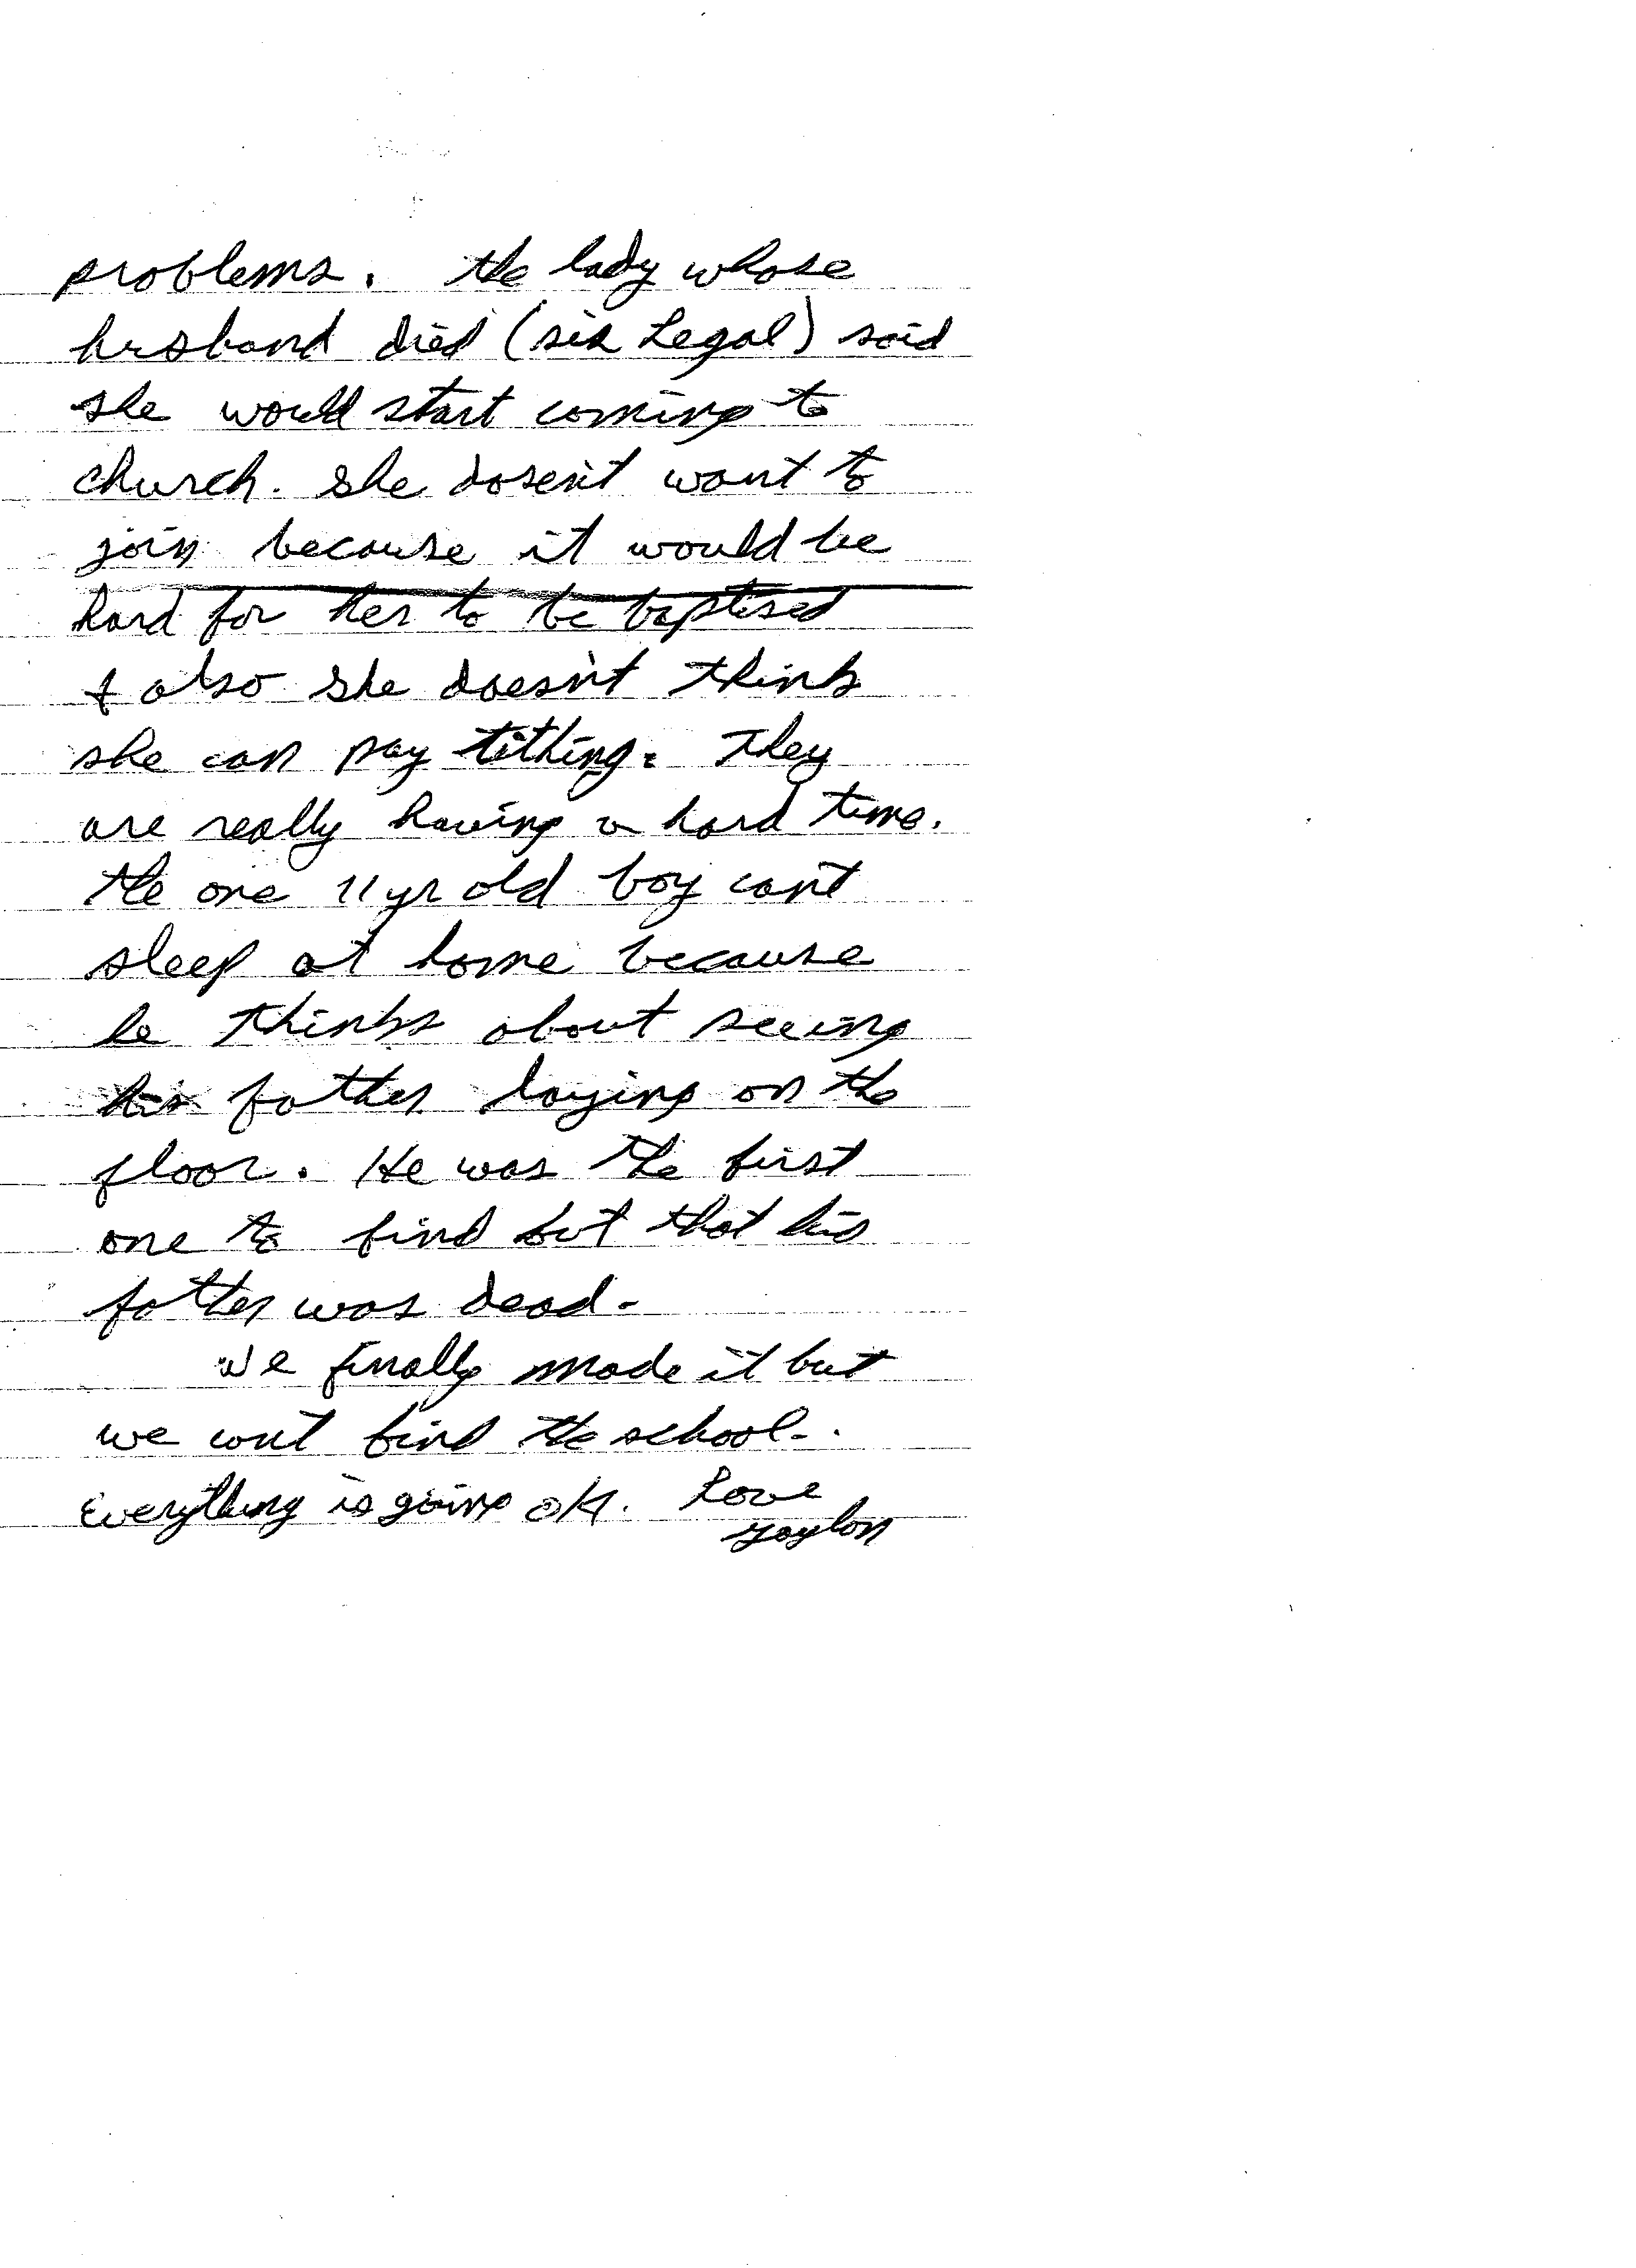 problems. the lady whose
husband died (sis Legal) said
she would start coming to
church. She dosen't want to
join because it would be
hard for her to be baptised
& also she doesn't think
she can pay tithing. They
are really having a hard time.
the one 11 yr old boy can't
sleep at home because
he thinks about seeing
his father laying on the
floor. He was the first
one to find out that his
father was dead.
We finally made it but
we can't find the school.
Everything is going OK. Love
Gaylon